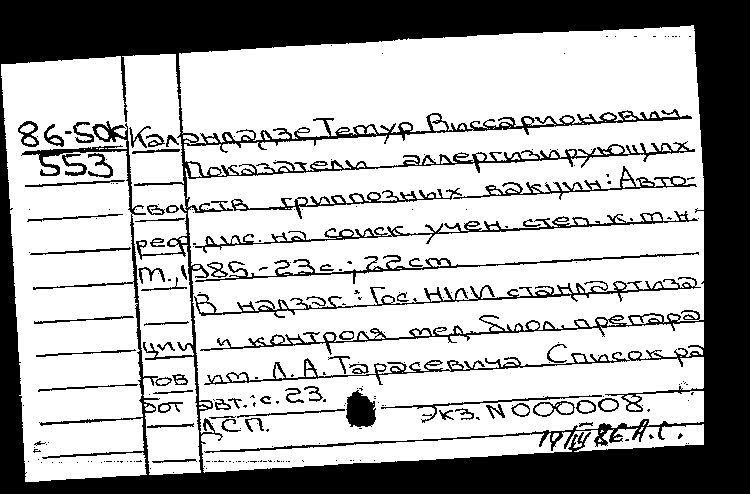 86-50к Каландадзе, Темур Виссарионович
553 Показатели аллергизирующих
свойств гриппозных вакцин: Авто-
реф. дис. на соиск учен. степ. к. м. н.-
М., 1985.-23 с.; 22 см
В надзаг.: Гос. НИИ стандартиза-
ции и контроля мед. биол. препара
тов им. Л. А. Тарасевича. Список ра
бот авт.: с. 23.
ДСП. Экз. N 000008.
17/III 86. А.С.